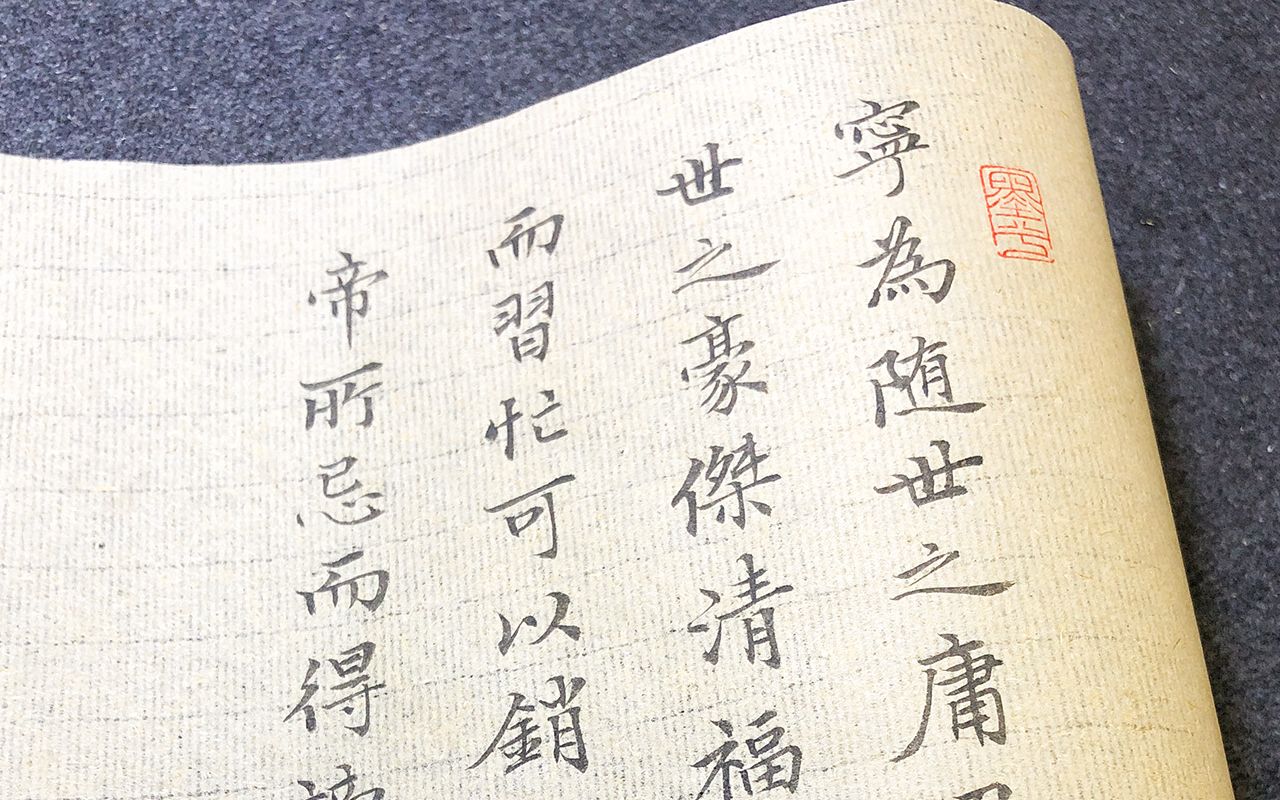 寧為随世之庸
世之豪傑清福
而習忙可以銷
帝所忌而得